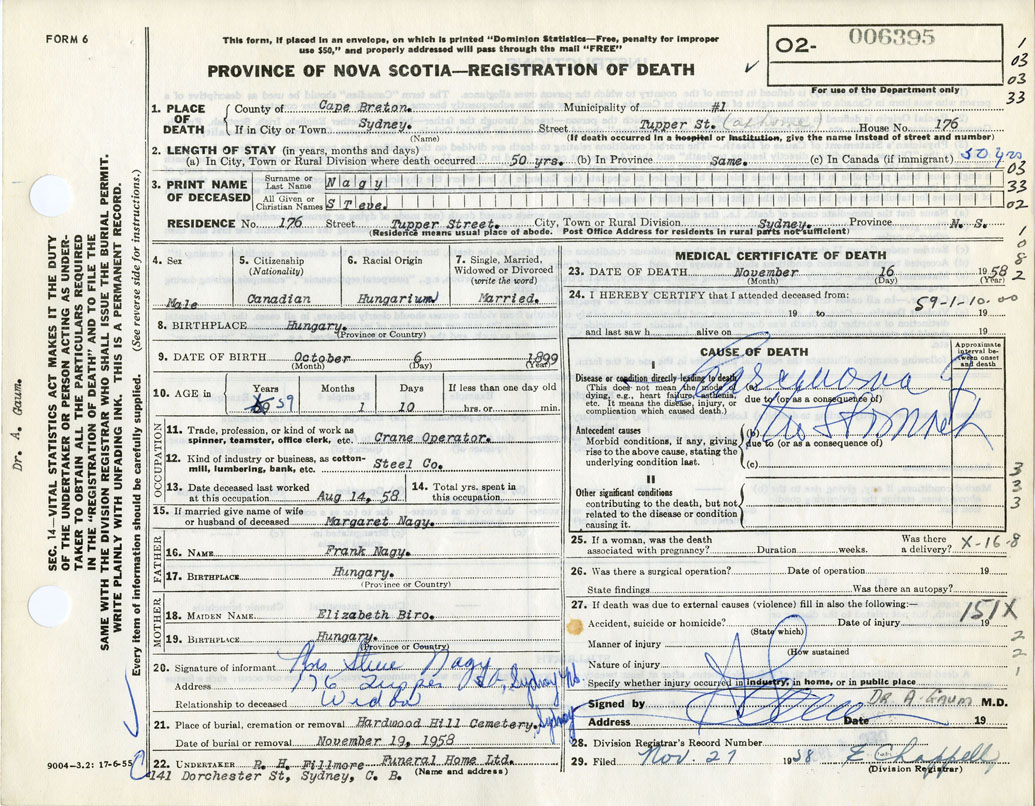 FORM 6
This form, if placed in an envelope, on which is printed "Dominion Statistics—Free, penalty for improper
use $50," and properly addressed will pass through the mail "FREE"
PROVINCE OF NOVA SCOTIA—REGISTRATION OF DEATH
O2- 006395
For use of the Department only
1
03
03
33
1. PLACE OF DEATH
County of Cape Breton. Municipality of #1
If in City or Town Sydney. Street Tupper St. (at home) House No. 176
(Name) (If death occurred in a hospital or institution, give the name instead of street and number)
2. LENGTH OF STAY (in years, months and days)
(a) In City, Town or Rural Division where death occurred 50 yrs. (b) In Province Same. (c) In Canada (if immigrant) 50 yrs
03
33
02
3. PRINT NAME OF DECEASED
Surname or Last Name Nagy
All Given or Christian Names STeve.
RESIDENCE No. 176 Street Tupper Street. City, Town or Rural Division Sydney. Province N. S.
(Residence means usual place of abode. Post Office Address for residents in rural parts not sufficient)
1
0
8
2
4. Sex
Male
5. Citizenship
(Nationality)
Canadian
6. Racial Origin
Hungarium
7. Single, Married,
Widowed or Divorced
(write the word)
Married.
8. BIRTHPLACE Hungary.
(Province or Country)
9. DATE OF BIRTH October 6 1899
(Month) (Day) (Year)
10. AGE in
Years Months Days If less than one day old
59 1 10 hrs. or min.
OCCUPATION
11. Trade, profession, or kind of work as
spinner, teamster, office clerk, etc. Crane Operator.
12. Kind of industry or business, as cotton-
mill, lumbering, bank, etc. Steel Co.
13. Date deceased last worked
at this occupation Aug 14, 58
14. Total yrs. spent in
this occupation
15. If married give name of wife
or husband of deceased Margaret Nagy.
FATHER
16. NAME Frank Nagy.
17. BIRTHPLACE Hungary.
(Province or Country)
MOTHER
18. MAIDEN NAME Elizabeth Biro.
19. BIRTHPLACE Hungary.
(Province or Country)
20. Signature of informant Mrs Steve Nagy
Address 176 Tupper St, Sydney N.S.
Relationship to deceased Widow
21. Place of burial, cremation or removal Hardwood Hill Cemetery. Sydney
Date of burial or removal November 19, 1958
22. UNDERTAKER R. H. Fillmore Funeral Home Ltd.
141 Dorchester St, Sydney, C. B. (Name and address)
9004—3.2: 17-6-55
MEDICAL CERTIFICATE OF DEATH
23. DATE OF DEATH November 16 1958
(Month) (Day) (Year)
24. I HEREBY CERTIFY that I attended deceased from:
59-1-10.00
19 to 19
and last saw h alive on 19
CAUSE OF DEATH
Approximate interval between onset and death
I
Disease or condition directly leading to death
(This does not mean the mode of
dying, e.g., heart failure, asthenia,
etc. It means the disease, injury, or
complication which caused death.)
(a) Carcinoma of
due to (or as a consequence of)
Antecedent causes
Morbid conditions, if any, giving
rise to the above cause, stating the
underlying condition last.
(b) the Stomach
due to (or as a consequence of)
(c)
II
Other significant conditions
contributing to the death, but not
related to the disease or condition
causing it.
3
3
3
25. If a woman, was the death
associated with pregnancy? Duration weeks. Was there
a delivery? X-16-8
26. Was there a surgical operation? Date of operation 19
State findings Was there an autopsy?
27. If death was due to external causes (violence) fill in also the following:—
151X
Accident, suicide or homicide? Date of injury 19
(State which)
Manner of injury
(How sustained
Nature of injury
2
2
1
Specify whether injury occurred in industry, in home, or in public place
Signed by DR A. GAUM M.D.
Address Date 19
28. Division Registrar's Record Number
29. Filed Nov. 27 1958
(Division Registrar)
Dr. A. Gaum.
SEC. 14—VITAL STATISTICS ACT MAKES IT THE DUTY
OF THE UNDERTAKER OR PERSON ACTING AS UNDER-
TAKER TO OBTAIN ALL THE PARTICULARS REQUIRED
IN THE "REGISTRATION OF DEATH" AND TO FILE THE
SAME WITH THE DIVISION REGISTRAR WHO SHALL ISSUE THE BURIAL PERMIT.
WRITE PLAINLY WITH UNFADING INK. THIS IS A PERMANENT RECORD.
Every item of information should be carefully supplied. (See reverse side for instructions.)